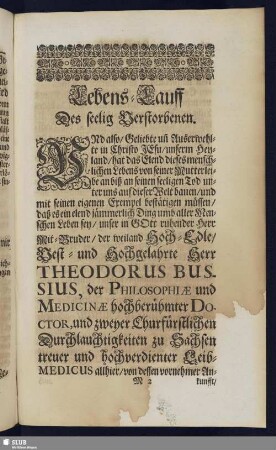 Lebens-Lauff
Des seelig Verstorbenen.
UNd also/ Geliebte uñ Auserwehl-
te in Christo JEsu/ unserm Hey-
land/ hat das Elend dieses mensch-
lichen Lebens von seiner Mutterlei-
be an biß an seinen seeligen Tod un-
ter uns auf dieser Welt bauen/ und
mit seinen eigenen Exempel bestätigen müssen/
daß es ein elend jämmerlich Ding umb aller Men-
schen Leben sey/ unser in GOtt ruhender Herr
Mit-Bruder/ der weiland Hoch-Edle/
Vest- und Hochgelahrte Herr
THEODORUS BUS-
SIUS, der PHILOSOPHIÆ und
MEDICINÆ hochberühmter DO-
CTOR, und zweyer Churfürstlichen
Durchlauchtigkeiten zu Sachsen
treuer und hochverdienter Leib-
MEDICUS allhier/ von dessen vornehmer An-
M 2 kunfft/
SLUB